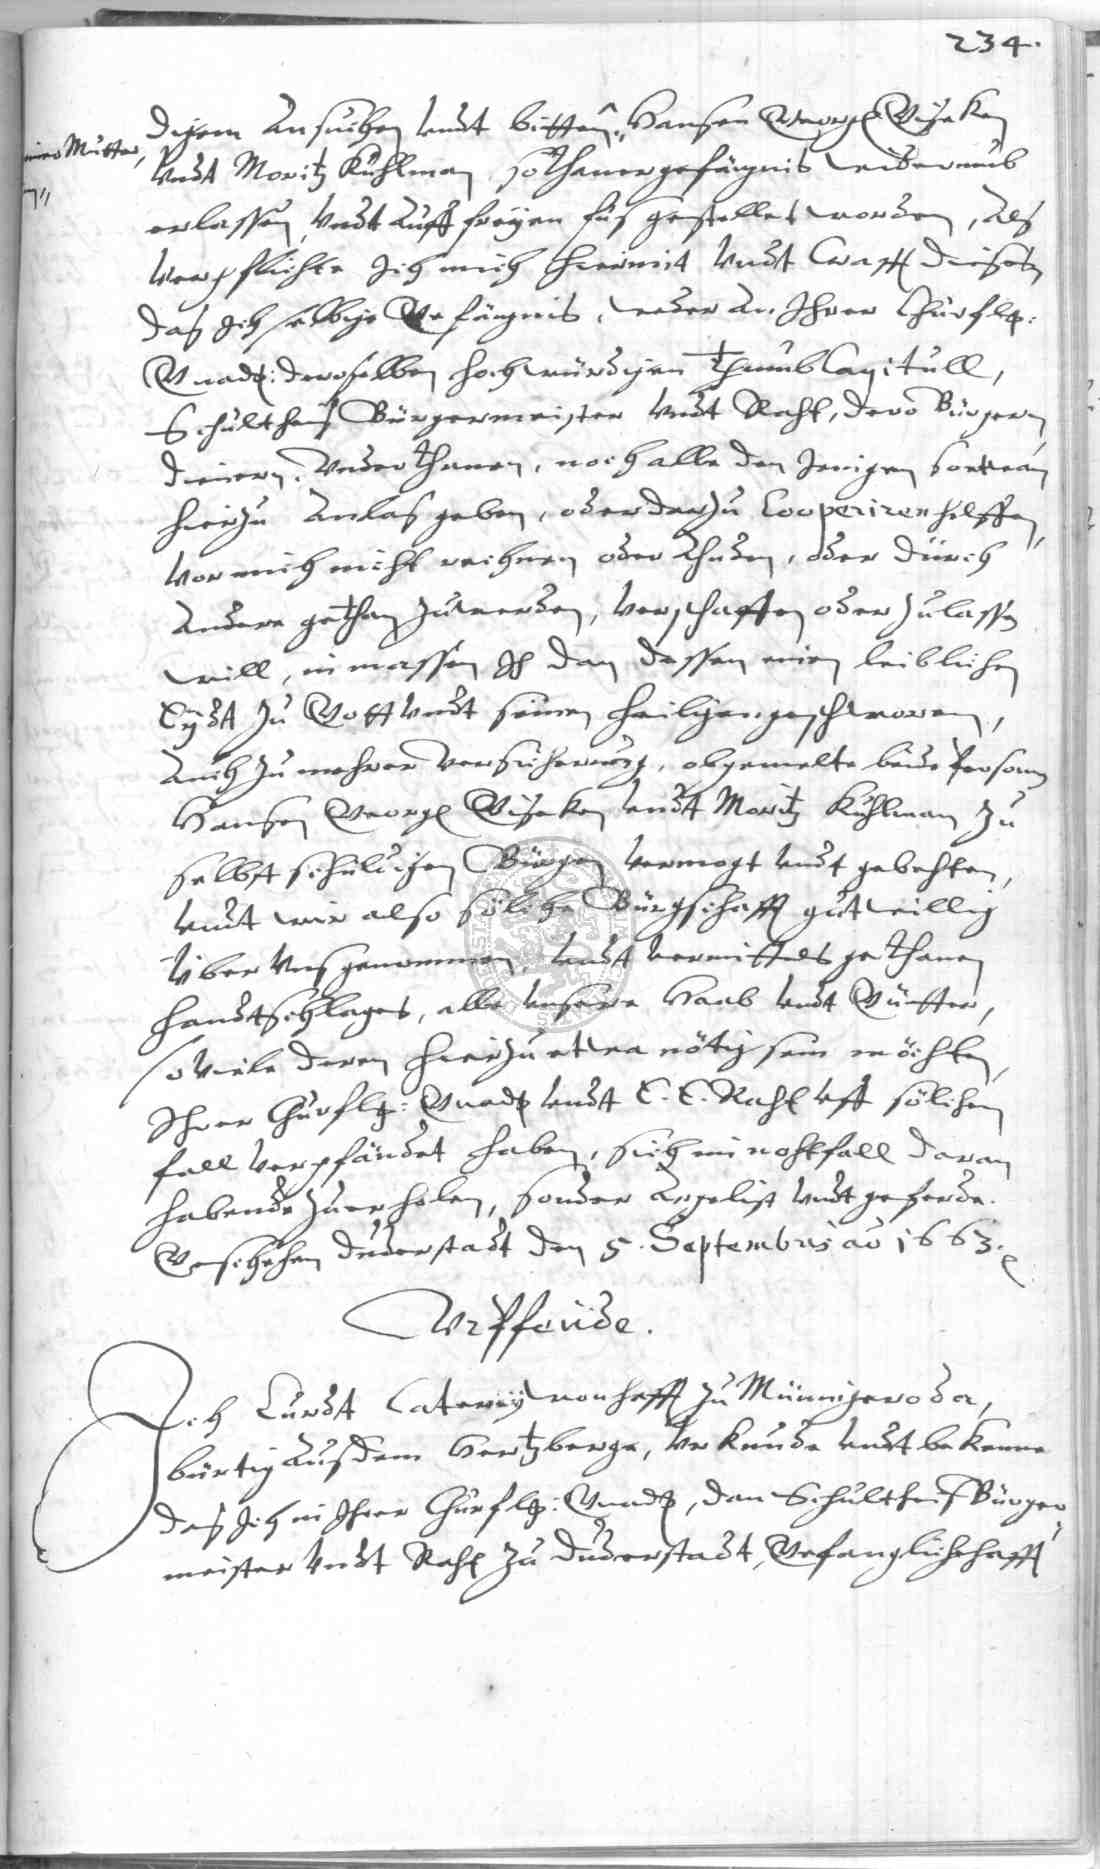 234.
digem Ansuchen undt bitten, Hansen Georg Giseken
einer Mutter,
Undt Moritz Kuhlman, sothaner gefängnis widerumb
erlassen, Undt Auff freyen fus gestellet worden, Als
Verpflichte Ich mich hiermit Undt Crafft dieses
das Ich selbige Gefängnis, weder An Ihrer Churfl:
Gnad: deroselben hochwürdigen ThumbCapitull,
Schultheis Bürgermeister Undt Raht, dero Bürgern,
dienern, Underthanen, noch alle den Jenigen so etwan
hierzu Anlas geben, oder darzu Cooperiren helffen,
Vor mich nicht rechnen oder Thuden, oder durch
Andere gethan zuwerden, Verschaffen oder Zulassen
will, inmassen Ich dan dessen einen leiblichen
Eydt zu Gott Undt seinen heiligen geschworen,
Auch zu mehrer Versicherung, obgemelte beide Persohn
Hansen Georg Giseken undt Moritz Kuhlman zu
selbst schuldigen Bürgen Vermogt undt gebehten,
undt wir also solche Bürgschafft gutwillig
Über Uns genommen, Undt vermittels gethanen
handtschlages, alle unsere Haab undt Gütter,
so viele deren hierzu etwa nötig sein möchten,
Ihrer Churfl: Gnad undt E. E. Raht uff solchen
fall Verpfändet haben, sich im nohtfall daran
habende zuerholen, sonder Argelist Undt geferde.
Geschehen duderstadt den 5. Septembris ao 1663.
Urffeude.
Ich Curdt Caterey wonhafft zu Minnigeroda,
bürtig Aus dem Hertzberge, Urkunde undt bekenne
das Ich in Ihrer Churfl: Gnad, dan Schultheis Bürger
meister Undt Raht zu duderstadt, Gefangliche hafft